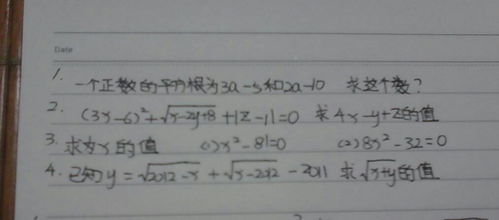 Date
1. 一个正数的平方根为3a-5和2a-10 求这个数?
2. (3x-6)²+√x-2y+8+|z-1|=0 求4x-y+z的值
3. 求x的值 (1)x²-81=0 (2)8x²-32=0
4. 已知y=√2012-x+√x-2012-2011 求√x+y的值